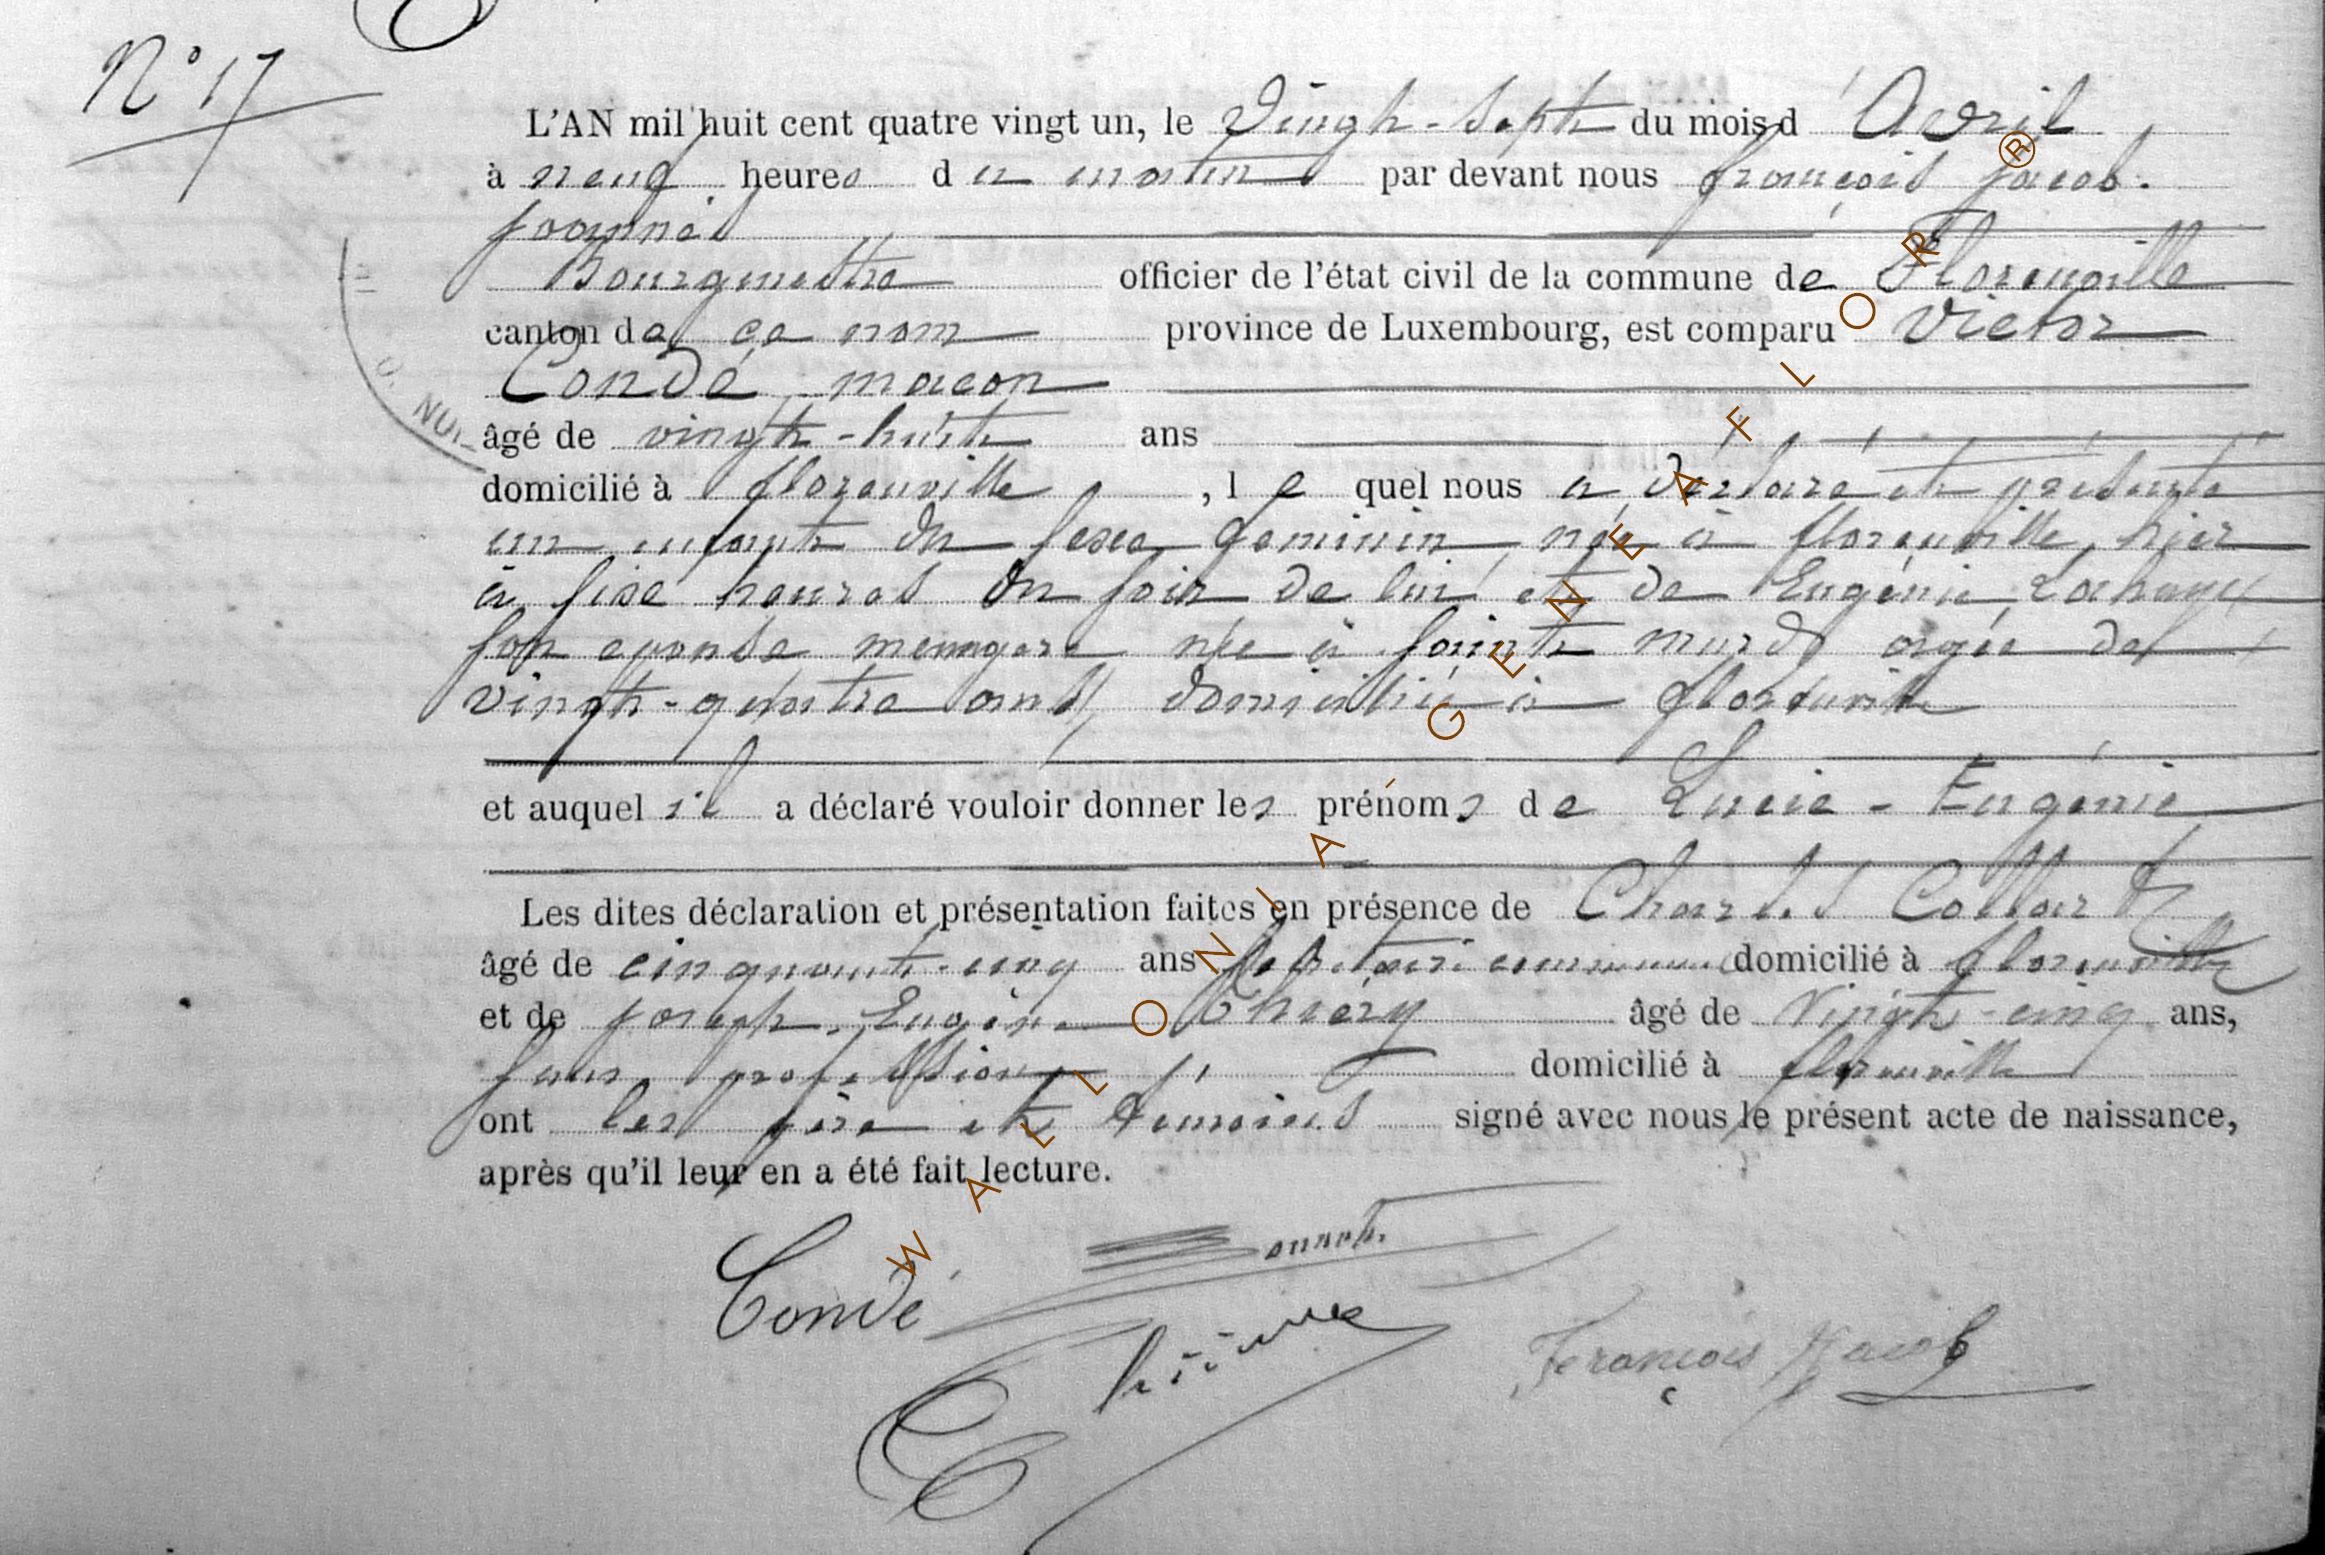 N° 17
L'AN mil huit cent quatre vingt un, le Vingt-Sept du mois d'Avril
à neuf heures du matin par devant nous françois jacob.
Bourgmestre officier de l'état civil de la commune de Florenville
canton de ce nom province de Luxembourg, est comparu Victor
Condé macon
âgé de vingt-huit ans
domicilié à florenville, le quel nous a déclaré et présenté
un enfant du sexe féminin, née à florenville, hier
à sise heures du soir de lui et de Eugénie Lahaye
son eponse menagere née à sainte marie agée de
vingt-quatre ans, domicilié à florenville
et auquel il a déclaré vouloir donner les prénoms de Lucie-Eugénie
Les dites déclaration et présentation faites en présence de Charles Collard
âgé de cinquante-cinq ans secrétaire communal domicilié à florenville
et de joseph-Eugène Thiéry âgé de Vingt-cinq ans,
sans profession domicilié à florenville
ont les père et témoins signé avec nous le présent acte de naissance,
après qu'il leur en a été fait lecture.
Condé
François Jacob
WALLONIA GENEAFLOR®